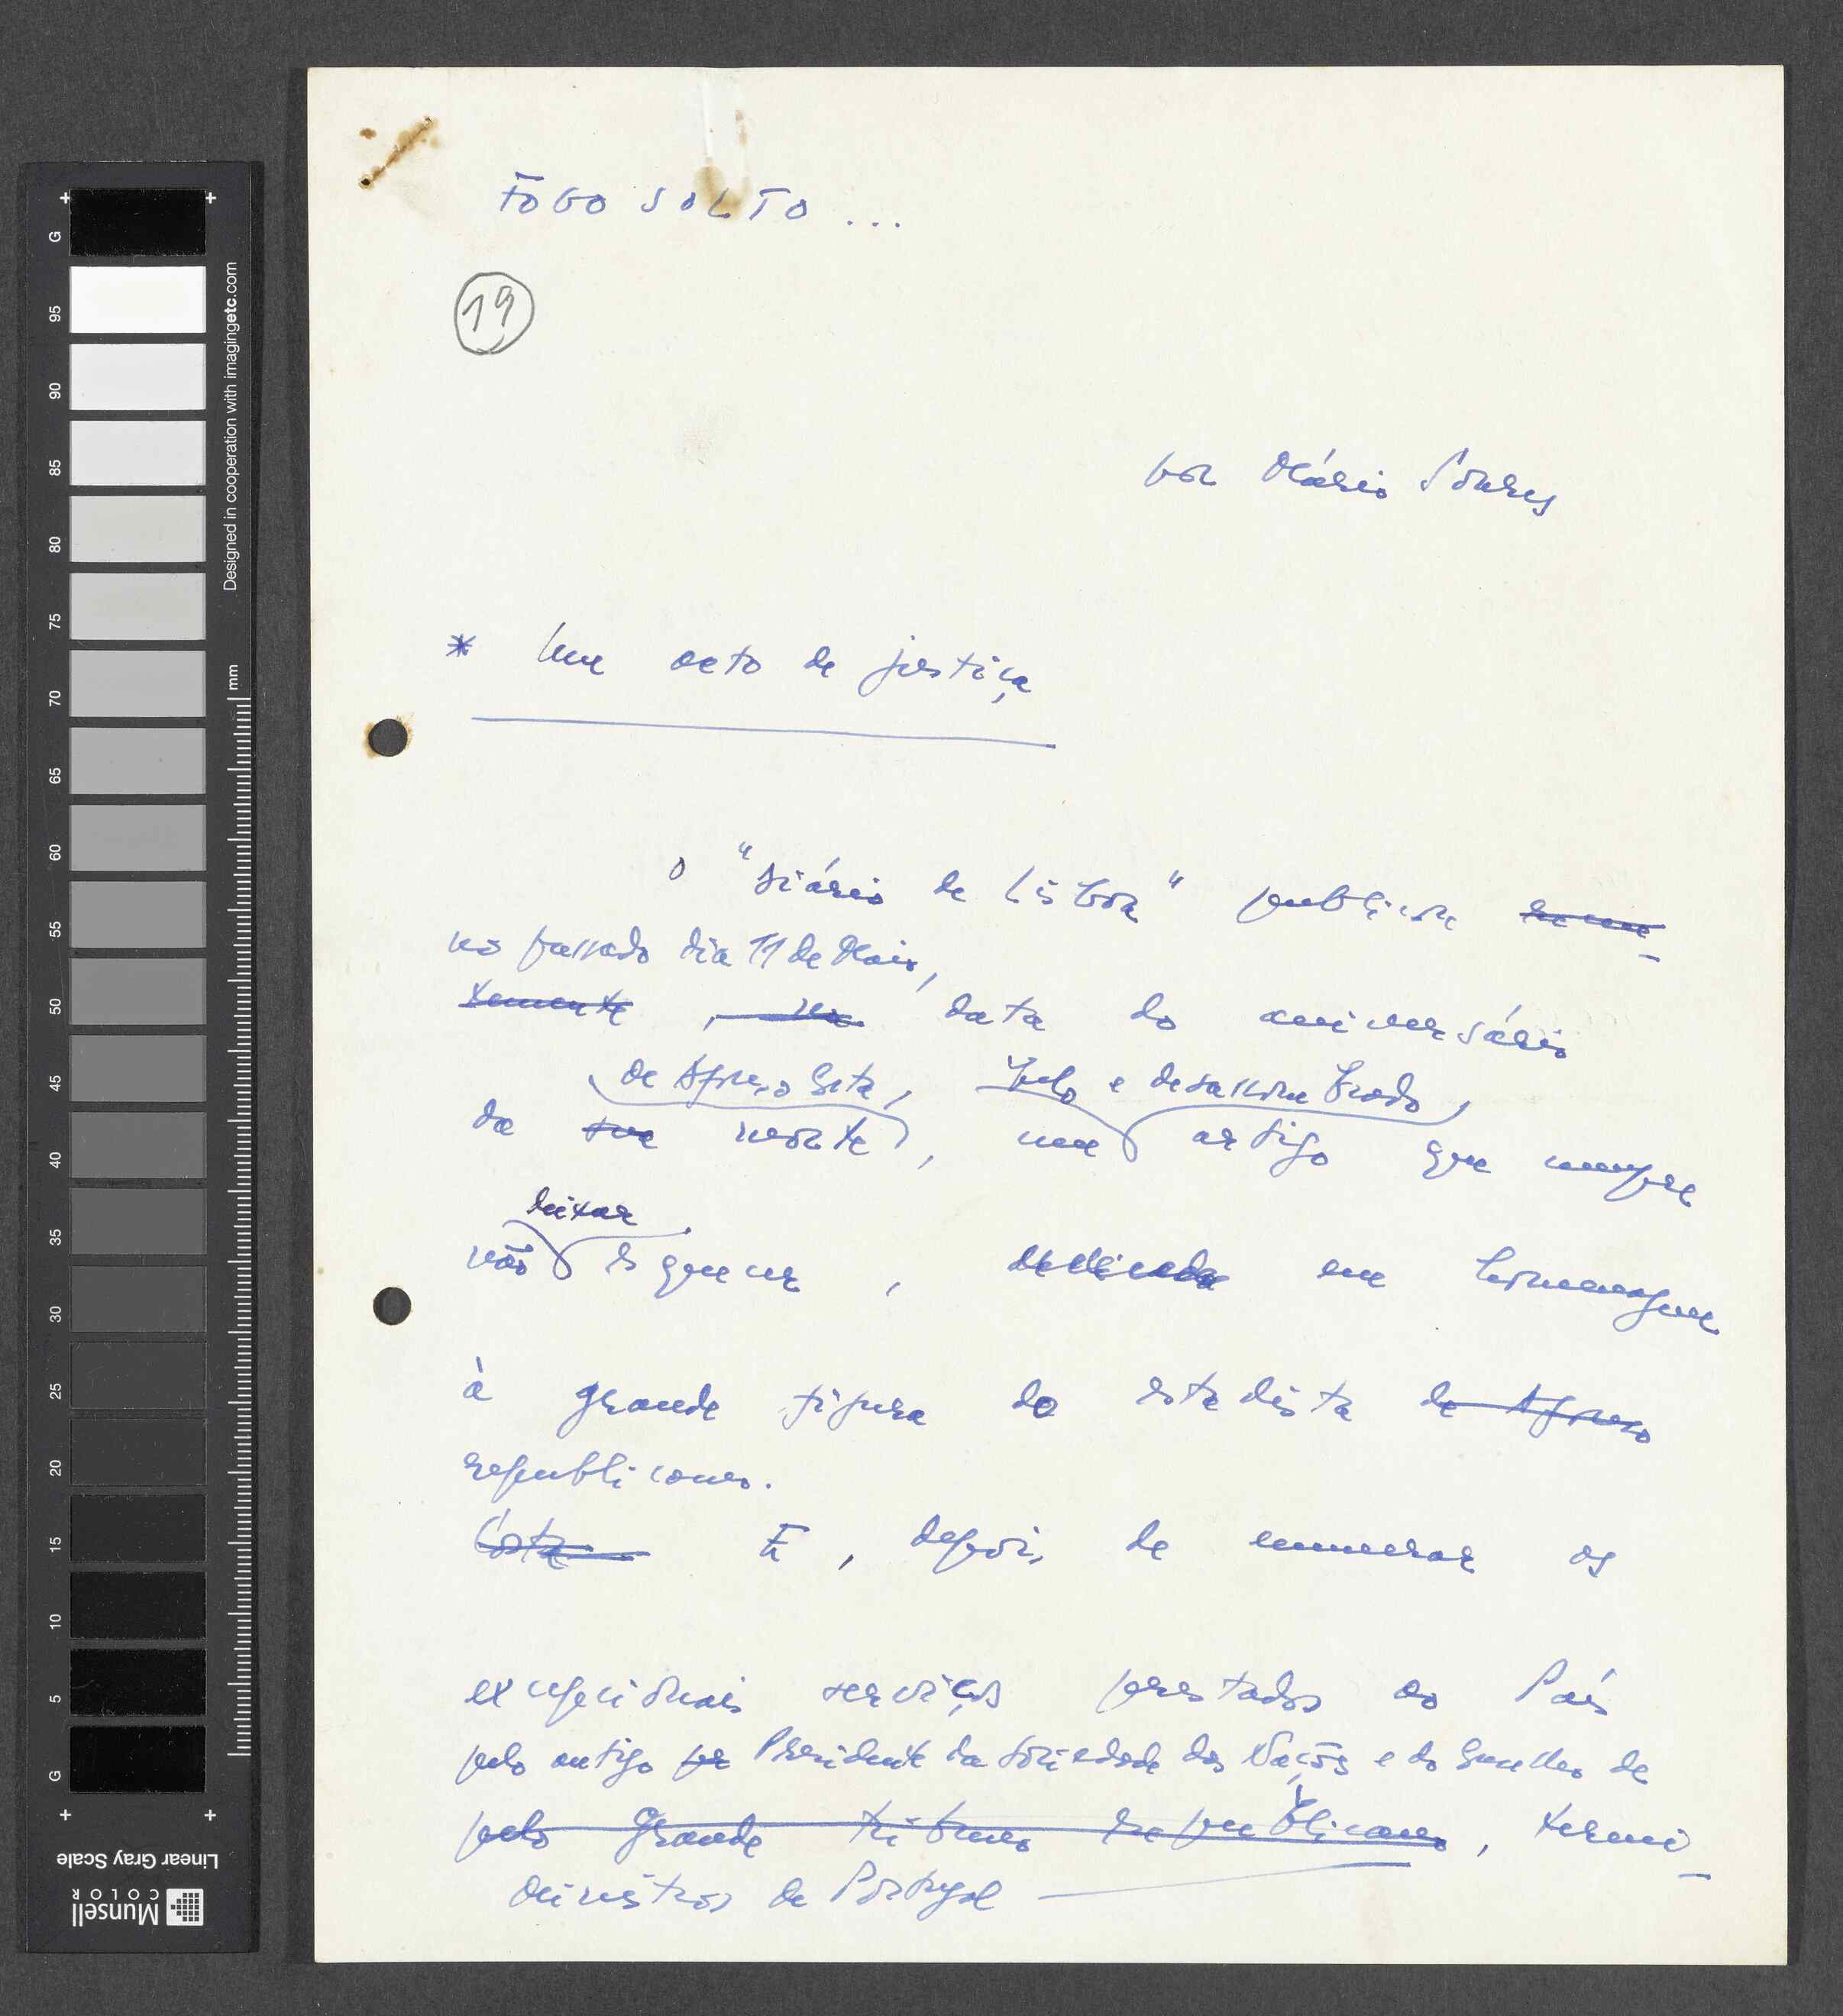 FOGO SOLTO ...
19
por Mário Soares
* Um acto de justiça
O "Diário de Lisboa" publicou recen-
no passado dia 11 de Maio,
temente, na data do aniversário
de Afonso Costa, belo e desassombrado,
da sua morte, um artigo que cumpre
deixar
não esquecer, dedicado em homenagem
à grande figura do estadista de Afonso
republicano.
Costa E, depois de enumerar os
excepcionais serviços prestados ao País
pelo antigo Presidente da Sociedade das Nações e do Conselho de
pelo grande tribuno republicano, termi-
Ministros de Portugal
G
95
90
85
80
75
70
65
60
55
50
45
40
35
30
25
20
15
10
5
G
mm
Designed in cooperation with imagingetc.com
Linear Gray Scale
Munsell
COLOR